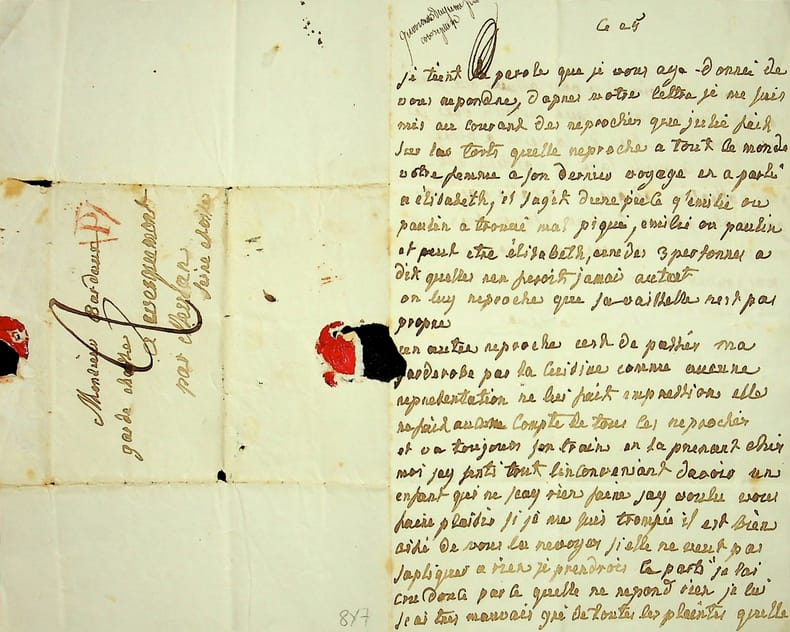 Monsieur Bardoux
garde chasse
a
par Meulan
Seine et oise
P
847
Ce 25
je tient la parole que je vous aye donnei de
vous repondre, dapres votre lettre je me suis
mis au courant des reproches que julie fait
sur las torts quelle reproche a tout le monde
votre femme a son dernier voyage en a parlé
a élisabeth, il sagit dune piece q'emilie ou
paulin a trouué mal piqué, emilie ou paulin
et peut etre élisabeth, une des 3 personnes a
dit quelles nen feroit jamais autant
on luy reproche que sa vaisselle nest pas
propre
un autre reproche cest de passés ma
garderobe par la Cuisine comme aucune
representation ne lui fait impression elle
ne fait aucune Compte de tous les reproches
et va toujours son train en la prenant chés
moi jay senti tout linconveniant davois un
enfant qui ne scay rien faire jay voulu vous
faire plaisir si je me suis trompée il est bien
aisé de vous la renvoyer si elle ne veut pas
sapliquer a rien je prendrois le parti je lai
cru douce par ce quelle ne repond rien je lui
scai tres mauvais gré de toutes les plaintes quelle